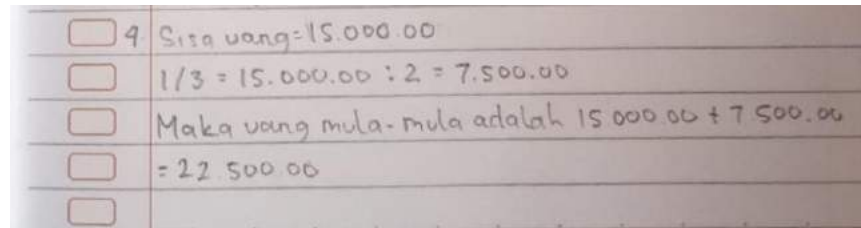 4. Sisa uang = 15.000.00
1/3 = 15.000.00 : 2 = 7.500.00
Maka uang mula-mula adalah 15 000.00 + 7 500.00
= 22.500.00